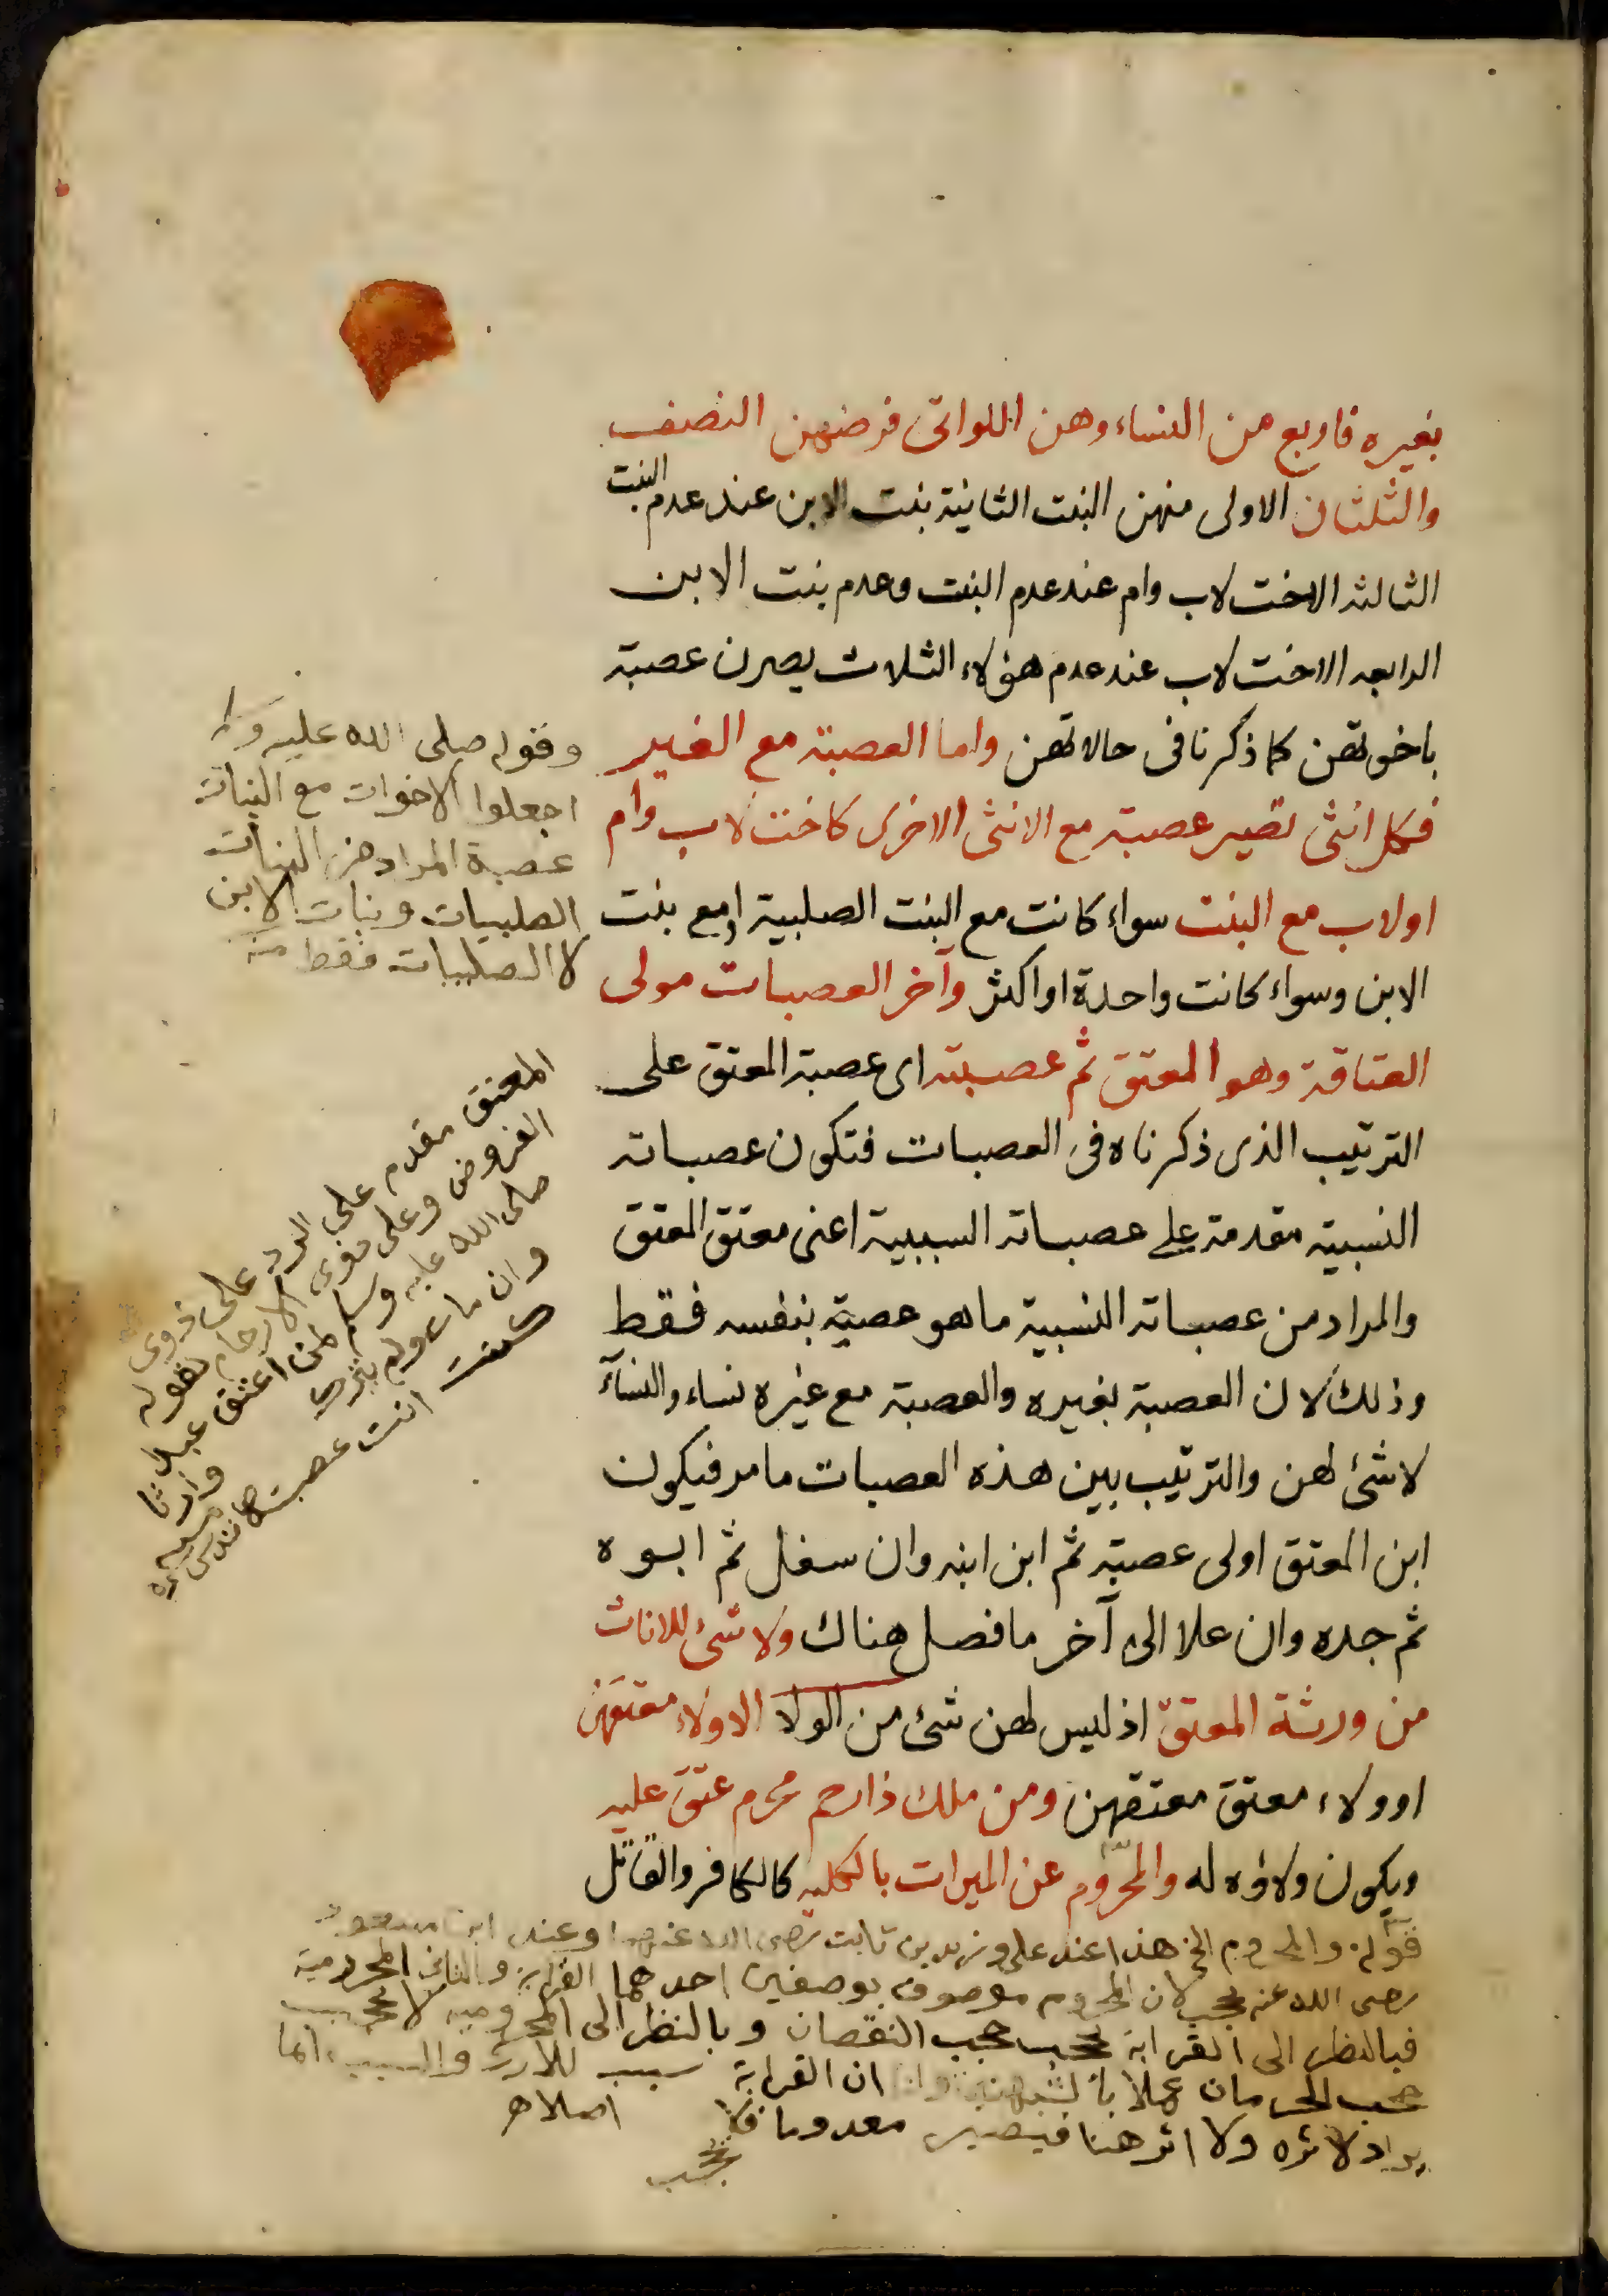 بغيره فاربع من النساء وهن اللواتى فرضهن النصف
والثلثان الاولى منهن البنت الثانية بنت الابن عند عدم البنت
الثالثه الاخت لاب وام عند عدم البنت وعدم بنت الابن
الرابعه الاخت لاب عند عدم هؤلاء الثلاث يصرن عصبة
باخوتهن كما ذكرنا فى حالاتهن واما العصبة مع الغير
فكل انثى تصير عصبة مع الانثى الاخرى كاخت لاب وام
اولاب مع البنت سواء كانت مع البنت الصلبية اومع بنت
الابن وسواء كانت واحدة او اكثر وآخر العصبات مولى
العتاقة وهو المعتق ثم عصبته اى عصبة المعتق على
الترتيب الذى ذكرناه فى العصبات فتكون عصباته
النسبية مقدمة على عصباته السببية اعنى معتق المعتق
والمراد من عصباته النسبية ما هو عصبة بنفسه فقط
وذلك لان العصبة بغيره والعصبة مع غيره نساء والنسآء
لا شئ لهن والترتيب بين هذه العصبات ما مر فيكون
ابن المعتق اولى عصبة ثم ابن ابنه وان سفل ثم ابوه
ثم جده وان علا الى آخر ما فصل هناك ولا شئ للاناث
من ورثة المعتق اذ ليس لهن شئ من الولا الا ولاء معتقهن
او ولاء معتق معتقهن ومن ملك ذا رحم محرم عتق عليه
ويكون ولاؤه له والمحروم عن الميراث بالكليه كالكافر والقاتل
وقوله صلى الله عليه و
اجعلوا الاخوات مع البنات
عصبة المراد من البنات
الصلبيات وبنات الابن
لا الصلبيات فقط منه
المعتق مقدم على الرد على ذوى
الفروض وعلى ذوى الارحام لقوله
صلى الله عليه وسلم لمن اعتق عبدا
وان مات ولم يترك وارثا
كنت انت عصبته
قوله والمحروم الخ هذا عند على وزيد بن ثابت رضى الله عنهما وعند ابن مسعود
رضى الله عنه يحجب لان المحروم موصوف بوصفين احدهما القرابة والثانى المحرومية
فبالنظر الى القرابة يحجب حجب النقصان وبالنظر الى المحروميه لا يحجب
حجب الحرمان عملا بالشبهتين ولنا ان القرابة سبب للارث والسبب انما
يراد لاثره ولا اثر هنا فيصير معدوما فلا
يحجب
اصلا